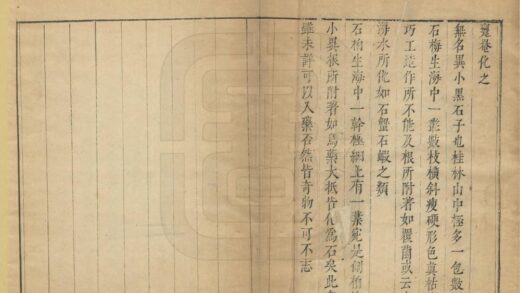 甕罨化之
無名異小黑石子也桂林山中極多一包數
石梅生海中一叢數枝橫斜瘦硬形色真枯
巧工造作所不能及根所附著如覆菌或云
海水所化如石蟹石蝦之類
石柏生海中一幹極細上有一葉宛是側柏
小異根所附著如烏藥大抵皆化為石矣此
雖未詳可以入藥否然皆奇物不可不志